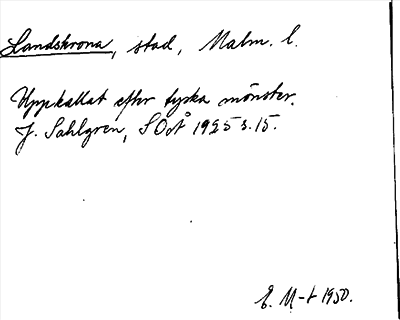 Landskrona, stad, Malm. l.
Uppkallat efter tyska mönster.
J. Sahlgren, SOoÅ 1925 s. 15.
E. M-t 1950.